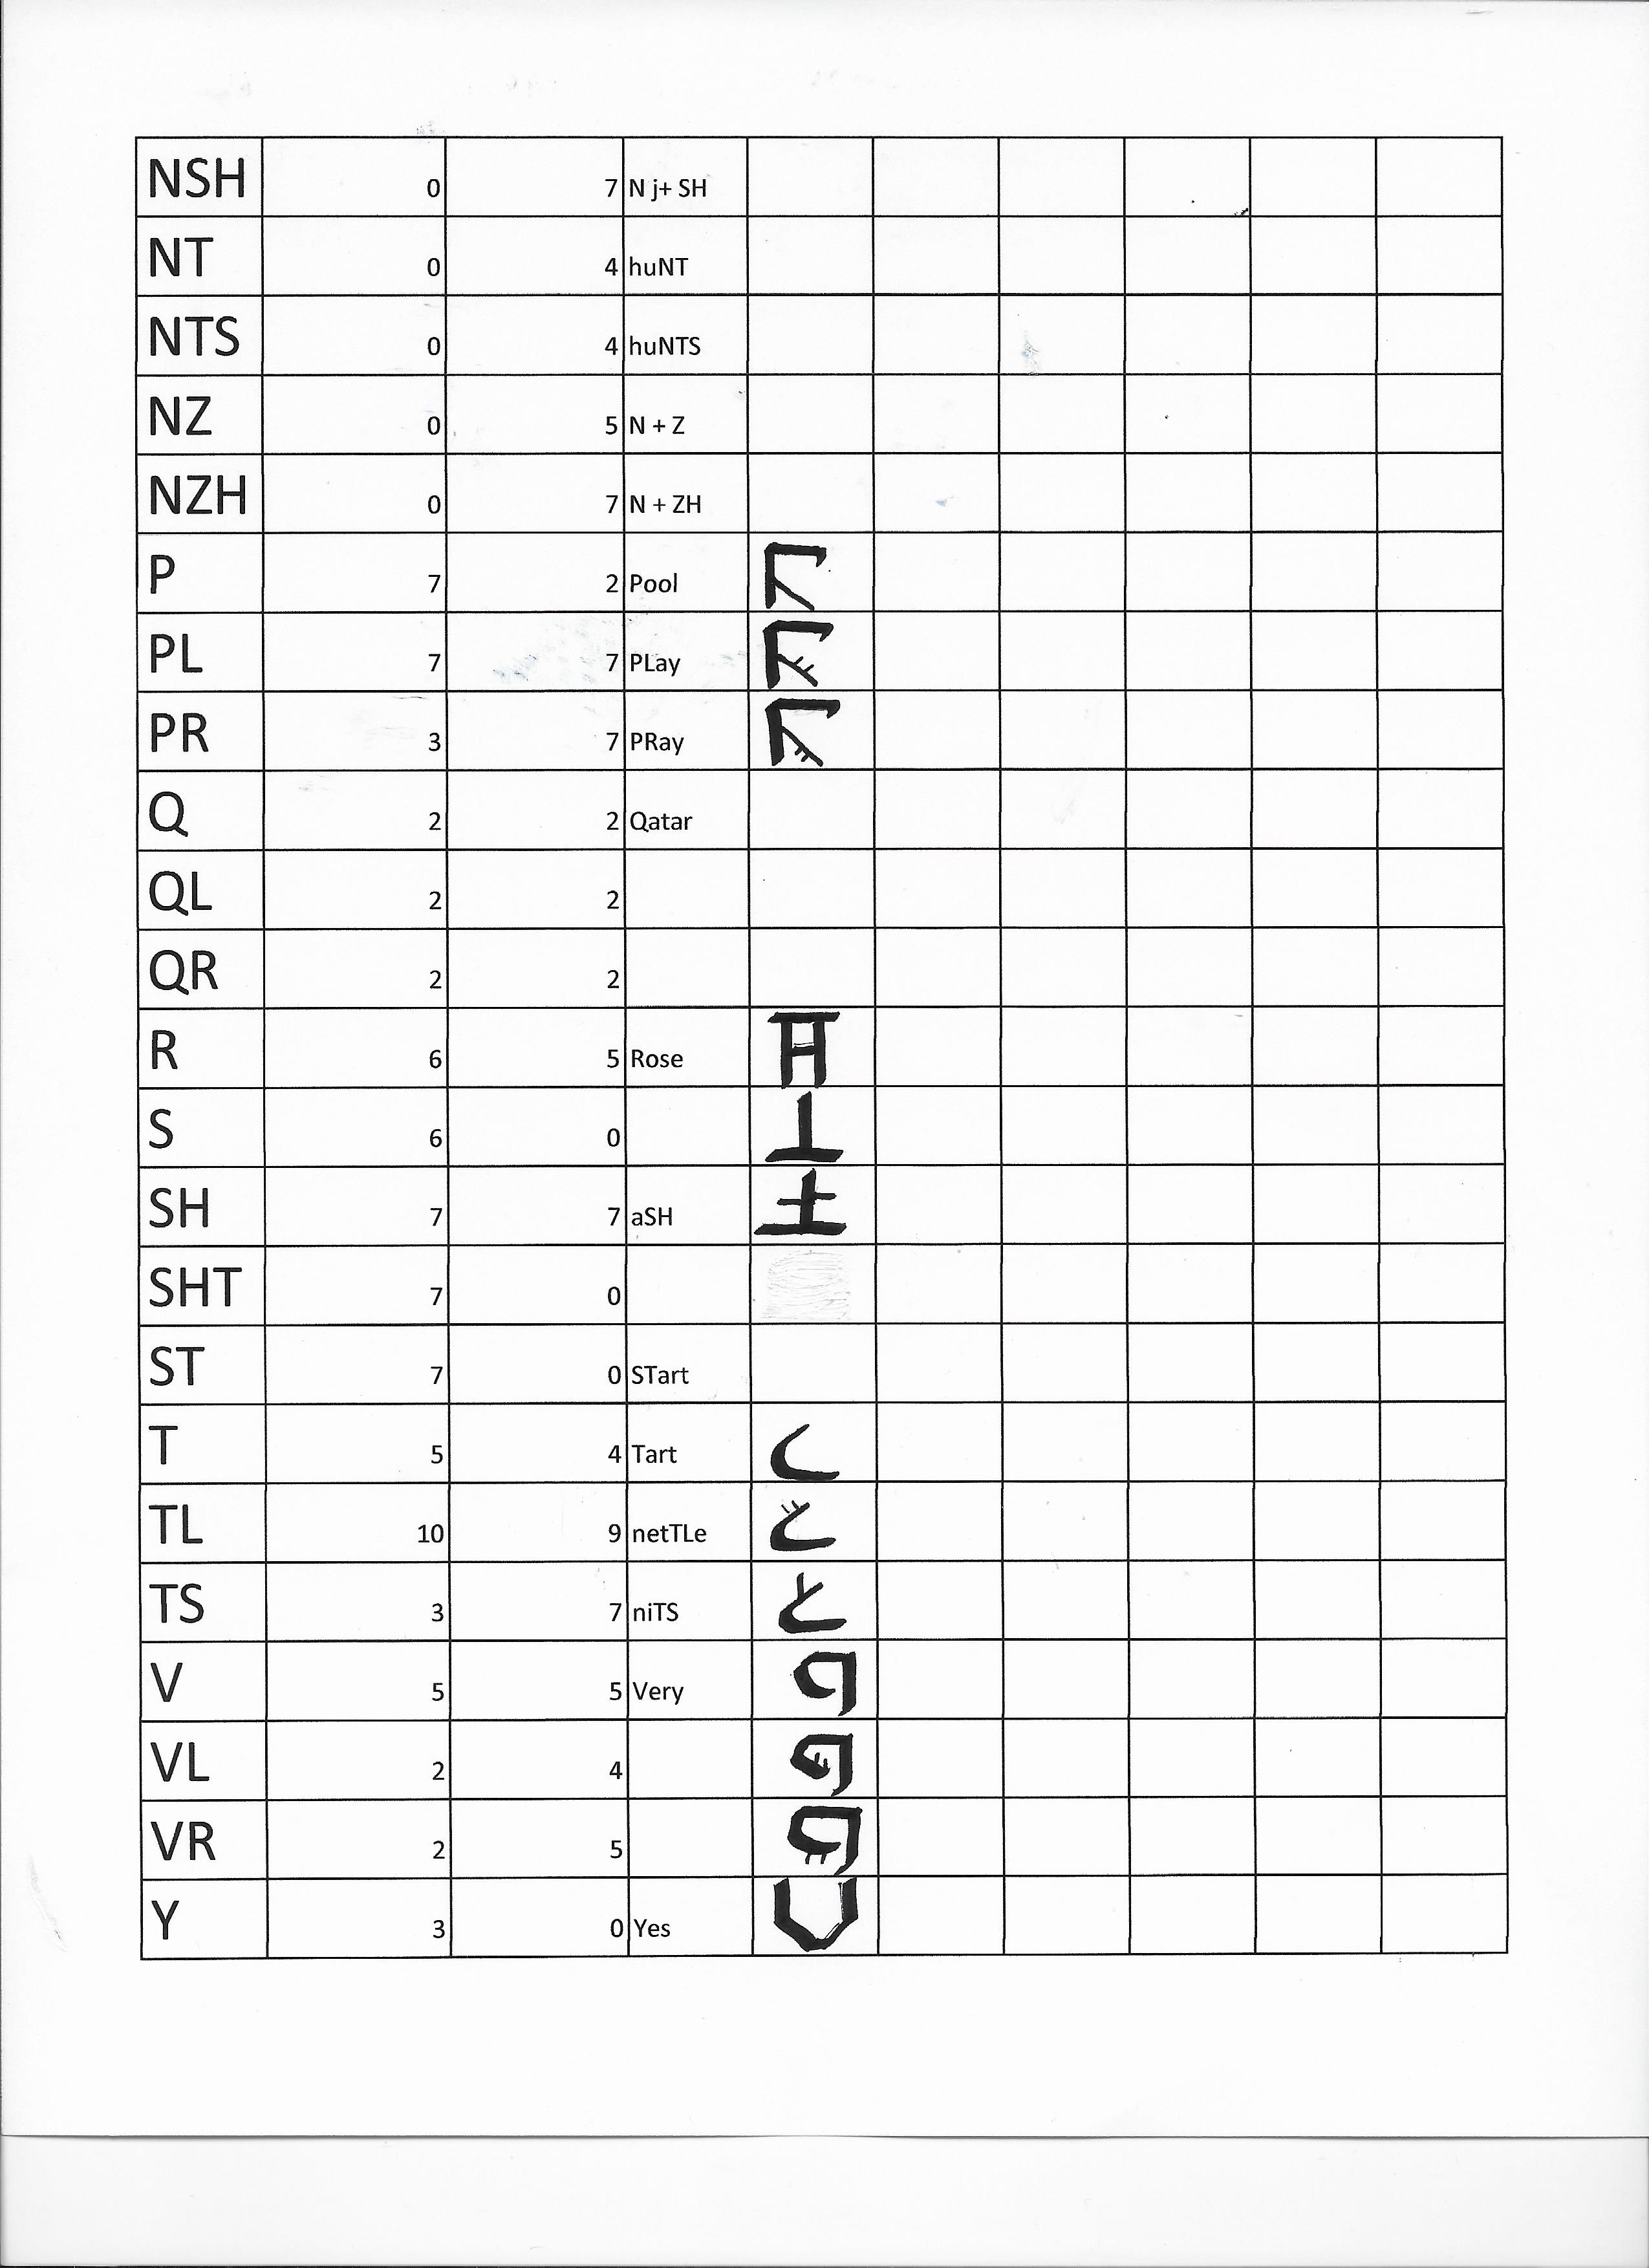 NSH 0 7 N j+ SH
NT 0 4 huNT
NTS 0 4 huNTS
NZ 0 5 N + Z
NZH 0 7 N + ZH
P 7 2 Pool
PL 7 7 PLay
PR 3 7 PRay
Q 2 2 Qatar
QL 2 2
QR 2 2
R 6 5 Rose
S 6 0
SH 7 7 aSH
SHT 7 0
ST 7 0 STart
T 5 4 Tart
TL 10 9 netTLe
TS 3 7 niTS
V 5 5 Very
VL 2 4
VR 2 5
Y 3 0 Yes